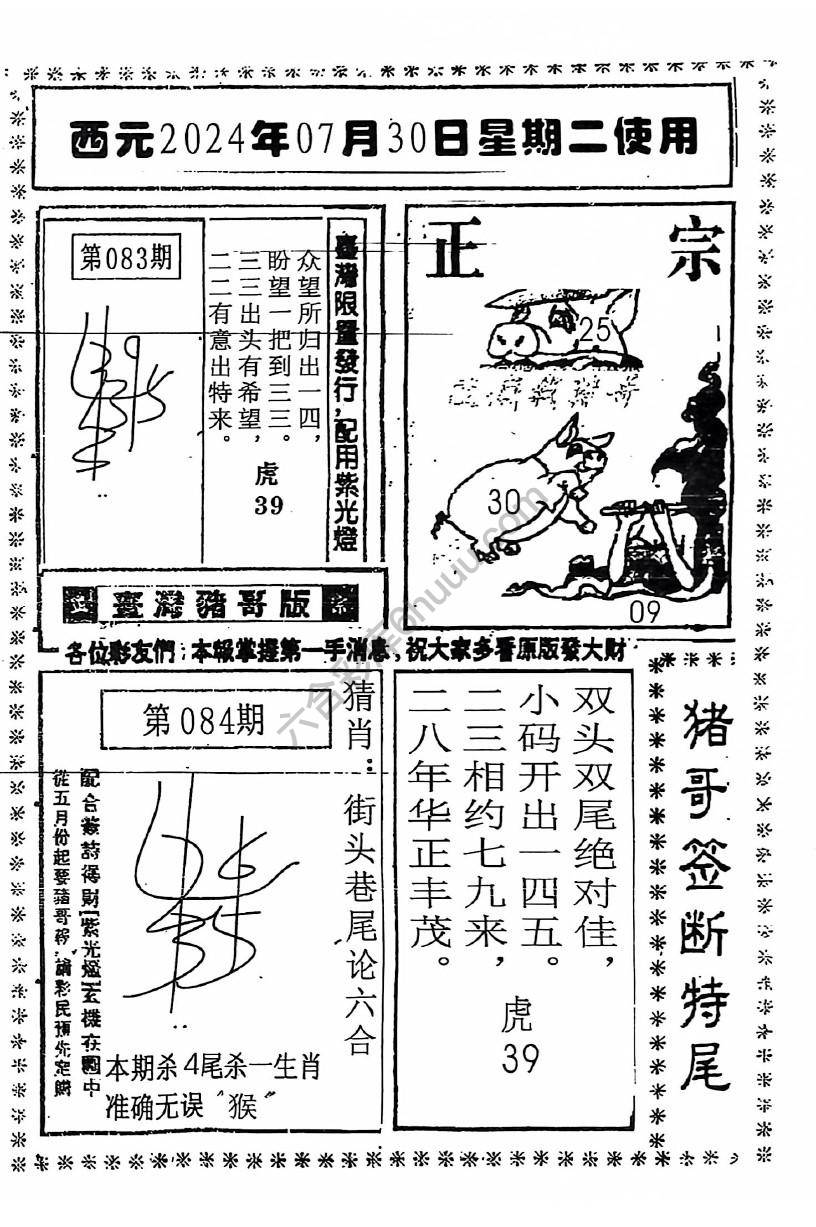 西元2024年07月30日星期二使用
第083期
众望所归出一四,
盼望一把到三三。
三三出头有希望,
二二有意出特来。
虎
39
臺灣限量發行,配用紫光燈
正宗
25
30
09
臺灣豬哥版
各位彩友們:本報掌握第一手消息,祝大家多看原版發大財
第084期
猜肖:街头巷尾论六合
配合簽詩得財紫光燈玄機在圖中
從五月份起要豬哥報,請彩民預先定購
本期杀4尾杀一生肖
准确无误“猴”
双头双尾绝对佳,
小码开出一四五。
二三相约七九来,
二八年华正丰茂。
虎
39
猪哥签断特尾
六合彩库6huuu.com